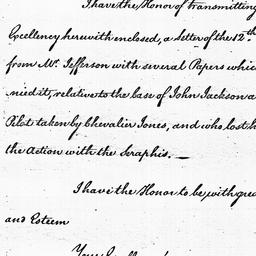 I have the Honor of transmitting
Excellency herewith enclosed, a Letter of the 12th
from Mr. Jefferson with several Papers which
nied it, relative to the case of John Jackson a
Pilot taken by Chevalier Jones, and who lost h
the Action with the Seraphis. —
I have the Honor to be with grea
and Esteem